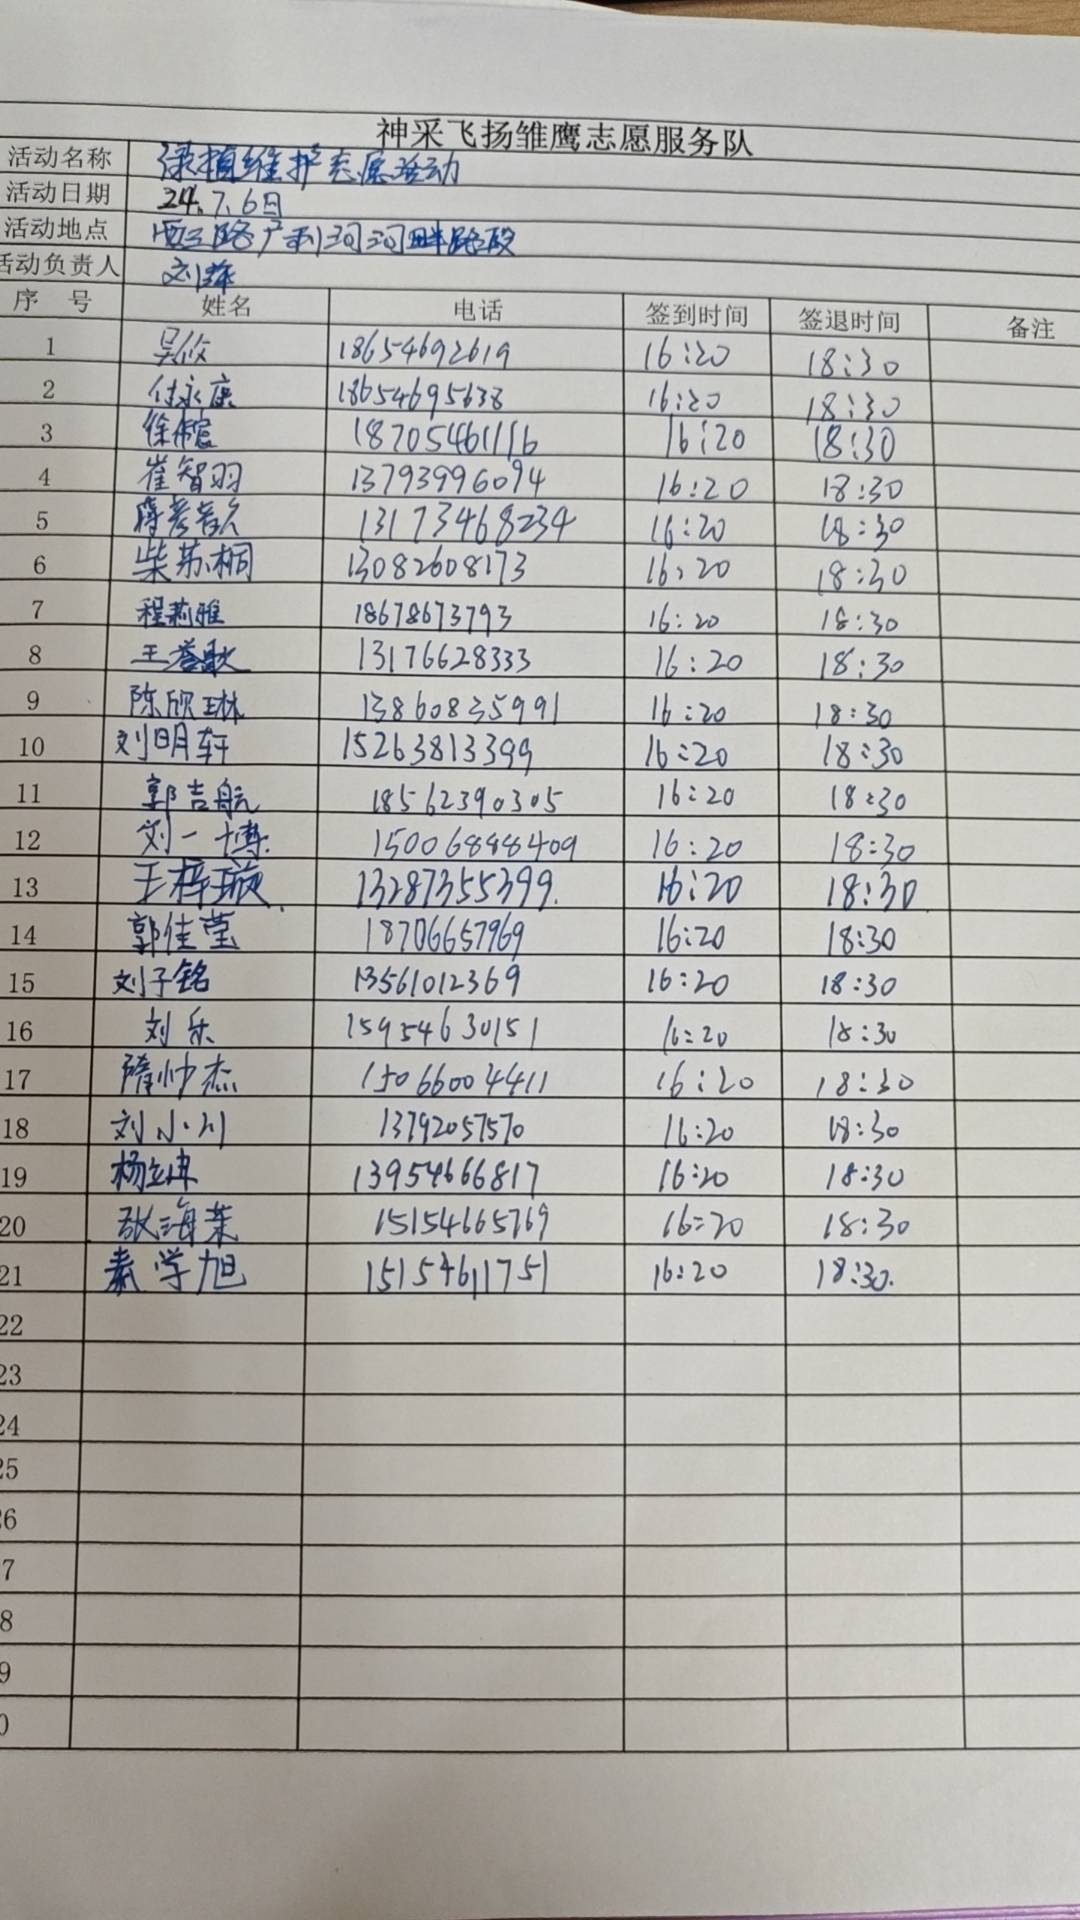 神采飞扬雏鹰志愿服务队
活动名称 绿植维护志愿活动
活动日期 24.7.6日
活动地点 西三路广利河河畔路段
活动负责人 刘萍
序 号 姓名 电话 签到时间 签退时间 备注
1 吴攸 18654692619 16:20 18:30
2 付永康 18654695638 16:20 18:30
3 18705461116 16:20 18:30
4 崔智羽 13793996094 16:20 18:30
5 13173468234 16:20 18:30
6 柴苏桐 13082608173 16:20 18:30
7 程莉雅 18678673793 16:20 18:30
8 王誉歌 13176628333 16:20 18:30
9 陈欣琳 13860835991 16:20 18:30
10 刘明轩 15263813399 16:20 18:30
11 郭吉航 18562390305 16:20 18:30
12 刘一博 15006888409 16:20 18:30
13 王梓璇 13287355399 16:20 18:30
14 郭佳莹 18706657969 16:20 18:30
15 刘子铭 13561012369 16:20 18:30
16 刘乐 15954630151 16:20 18:30
17 隋帅杰 15066004411 16:20 18:30
18 刘小川 13792057570 16:20 18:30
19 13954666817 16:20 18:30
20 张海茉 15154665769 16:20 18:30
21 秦学旭 15154611751 16:20 18:30
22
23
24
25
26
7
8
9
0